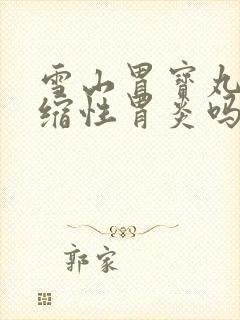 雪山胃宝丸
缩性胃炎吗
郭家